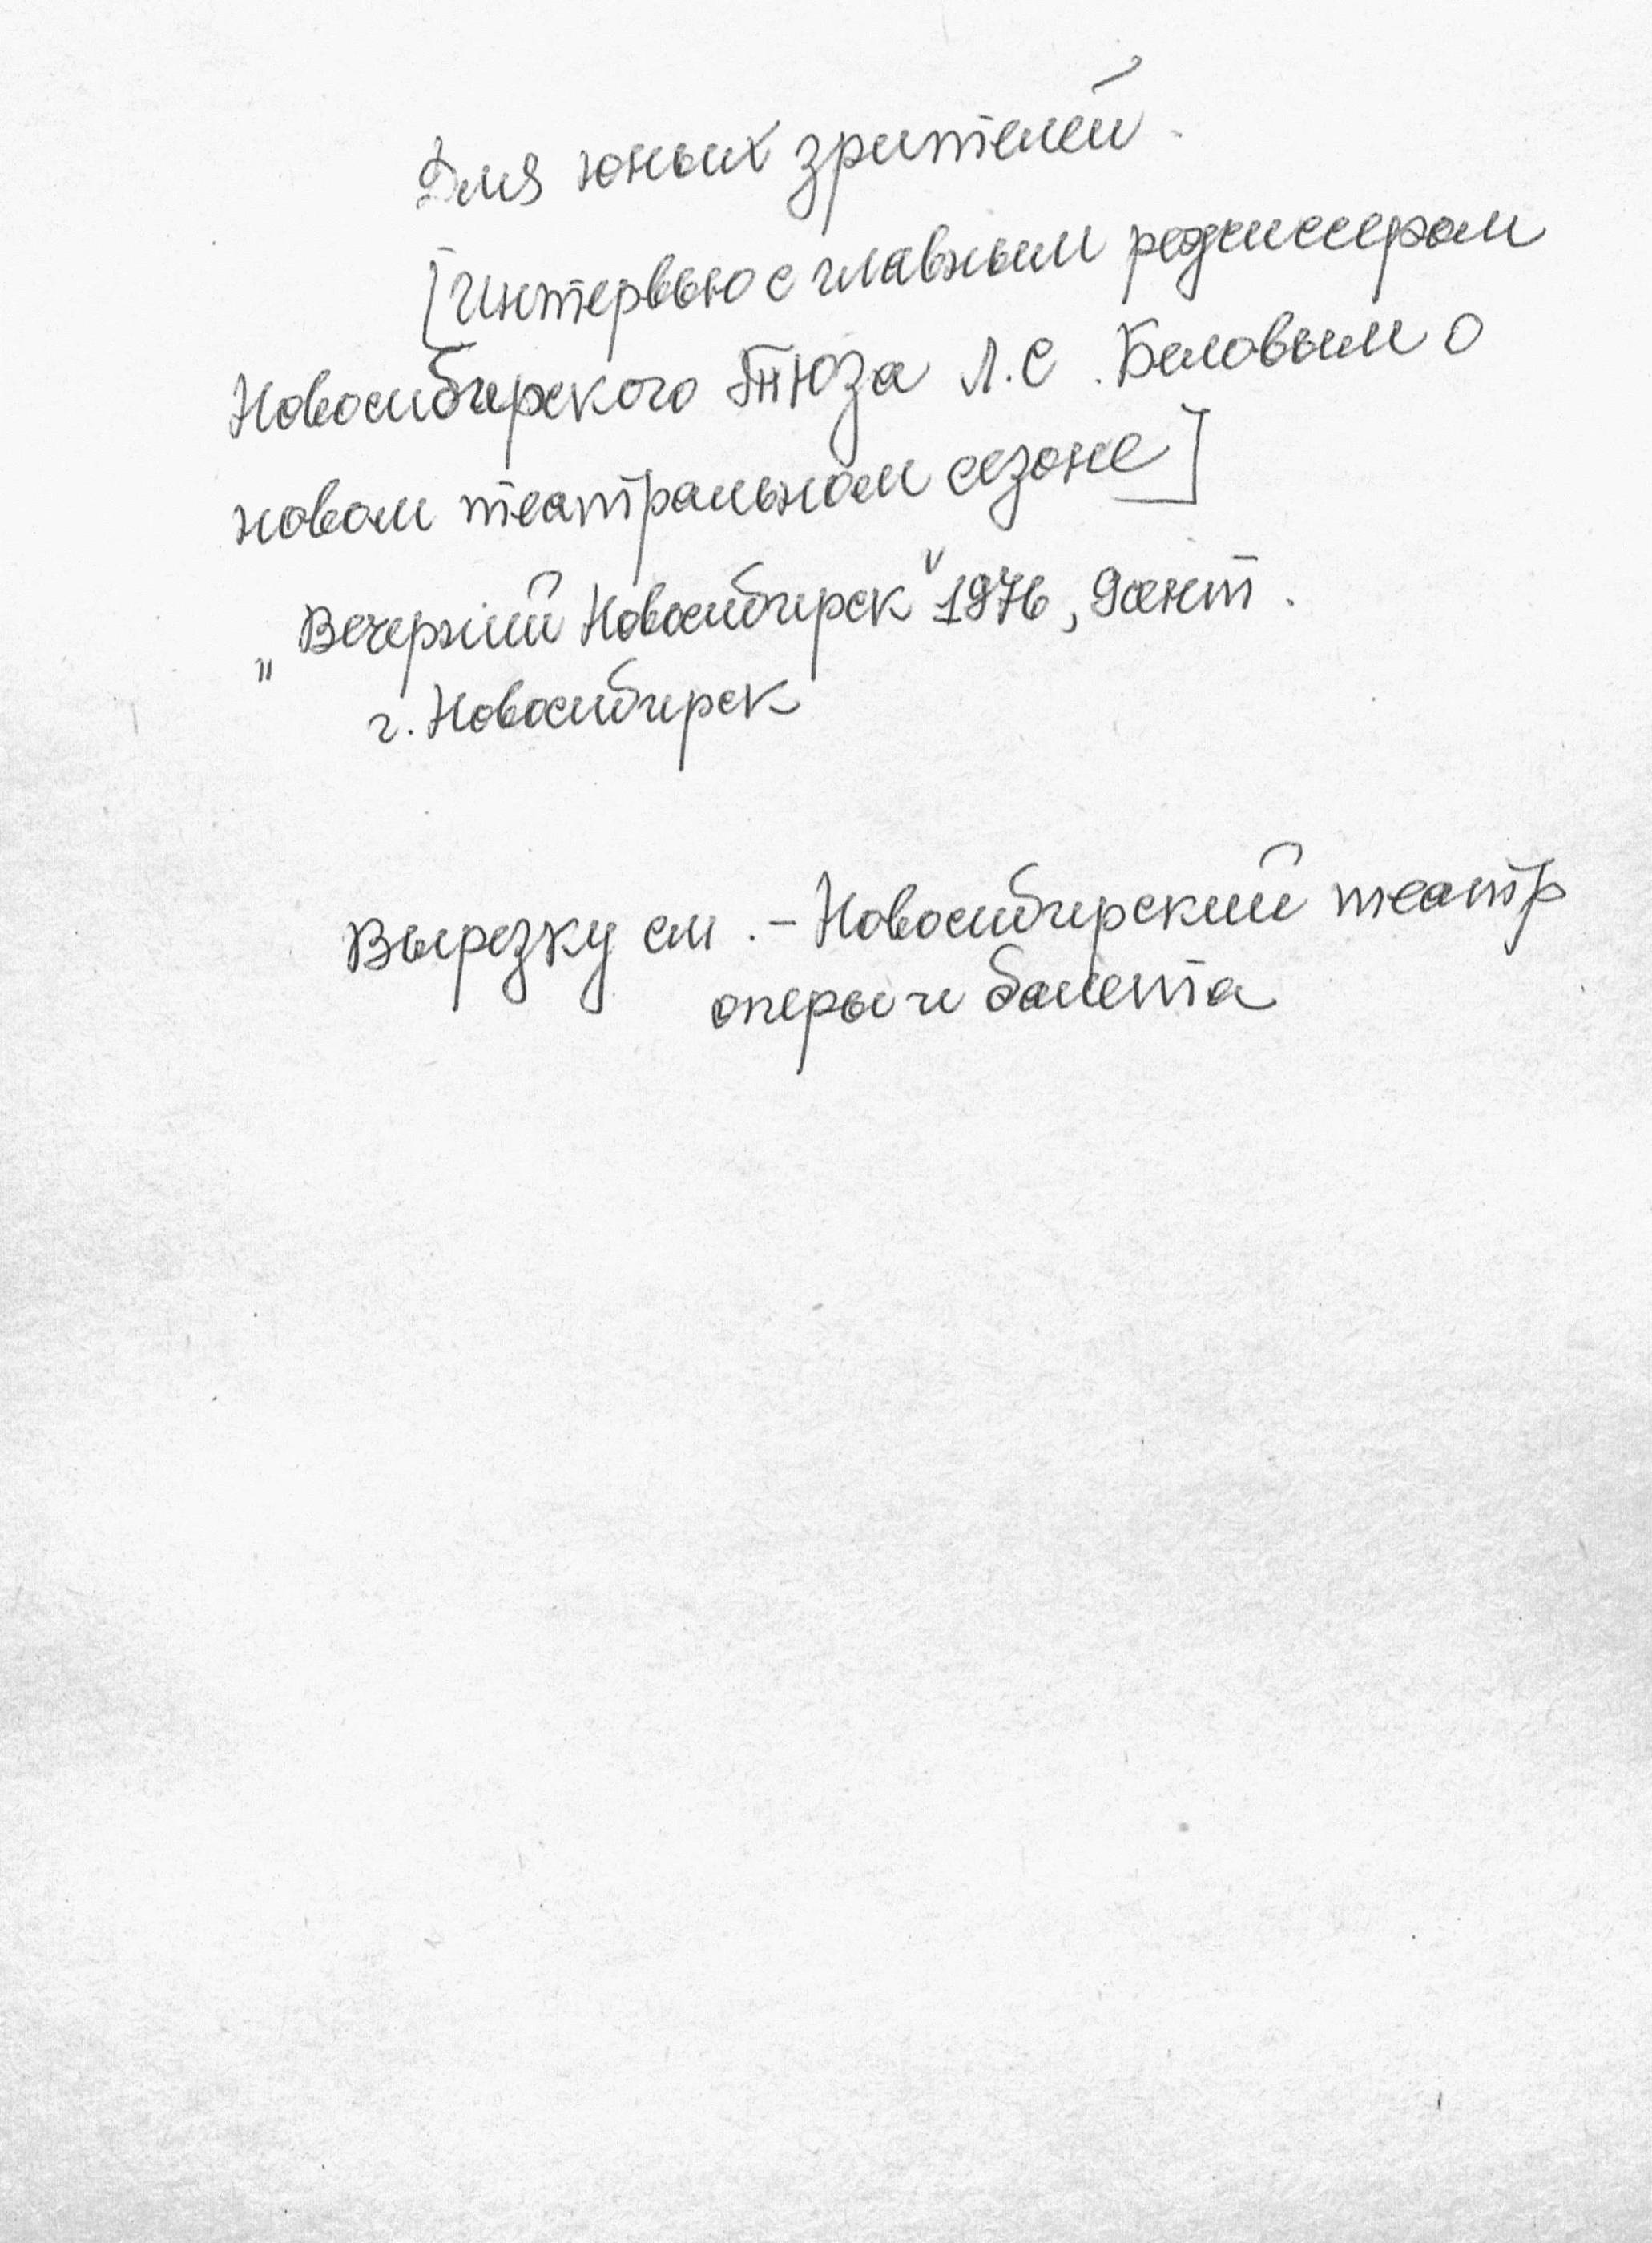 Для юных зрителей.
[Интервью с главным режиссером
Новосибирского ТЮЗа Л.С. Беловым о
новом театральном сезоне]
„Вечерний Новосибирск" 1976, 9 сент.
г. Новосибирск
Вырезку см. - Новосибирский театр
оперы и балета